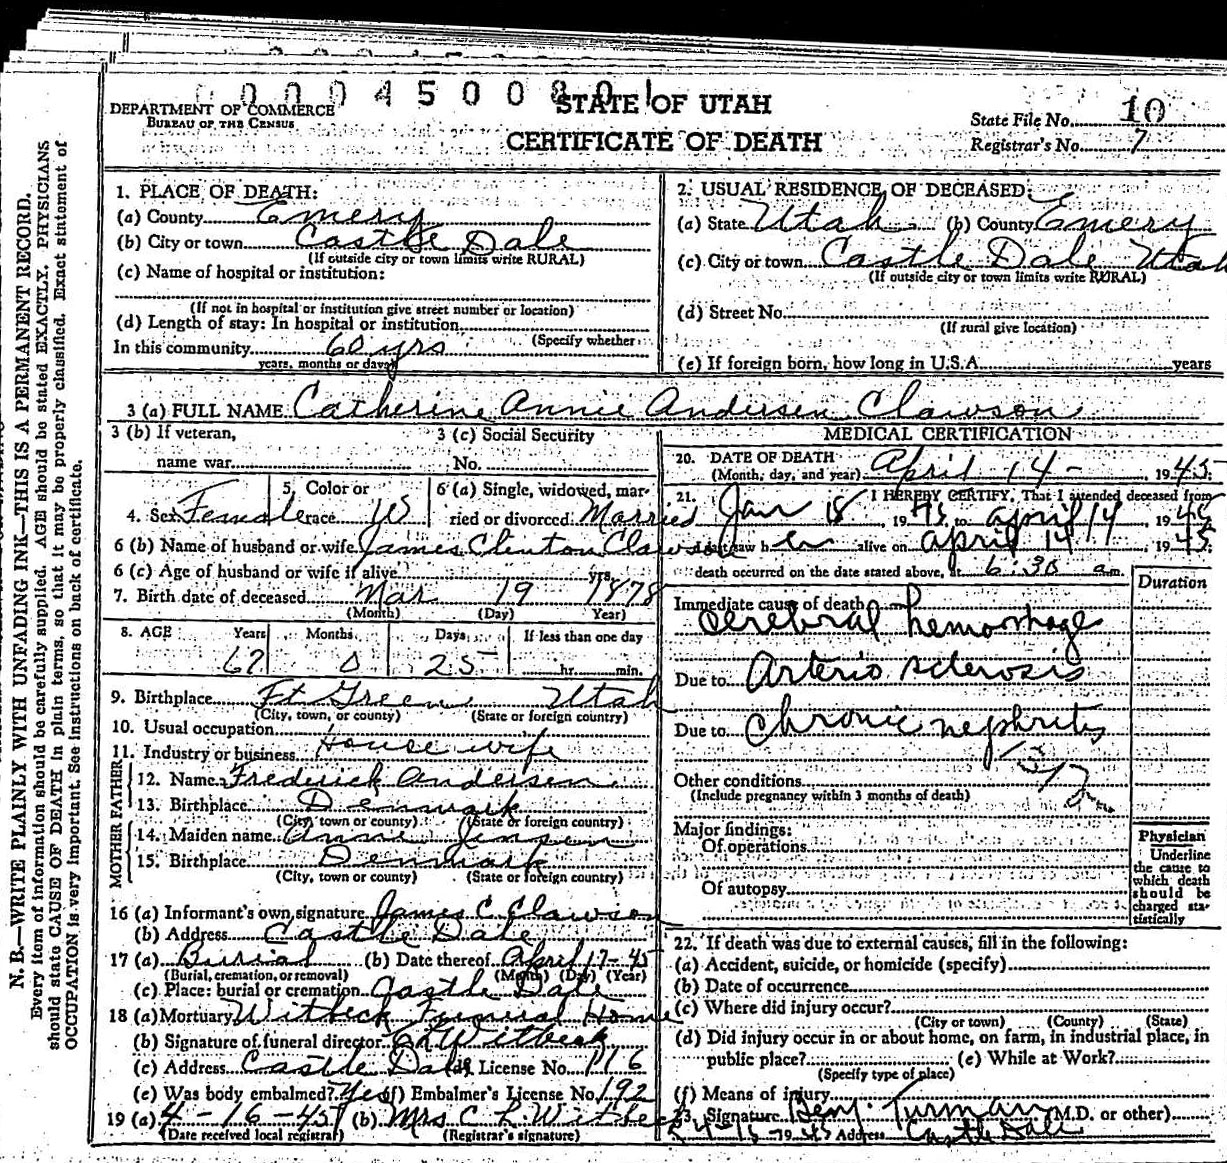 0000450080
STATE OF UTAH
DEPARTMENT OF COMMERCE
BUREAU OF THE CENSUS
CERTIFICATE OF DEATH
State File No. 10
Registrar's No. 7
N. B.—WRITE PLAINLY WITH UNFADING INK—THIS IS A PERMANENT RECORD.
Every item of information should be carefully supplied. AGE should be stated EXACTLY. PHYSICIANS
should state CAUSE OF DEATH in plain terms, so that it may be properly classified. Exact statement of
OCCUPATION is very important. See instructions on back of certificate.
1. PLACE OF DEATH:
(a) County Emery
(b) City or town Castle Dale
(If outside city or town limits write RURAL)
(c) Name of hospital or institution:
(If not in hospital or institution give street number or location)
(d) Length of stay: In hospital or institution
(Specify whether
In this community 60 yrs
years, months or days)
2. USUAL RESIDENCE OF DECEASED:
(a) State Utah (b) County Emery
(c) City or town Castle Dale Utah
(If outside city or town limits write RURAL)
(d) Street No.
(If rural give location)
(e) If foreign born, how long in U.S.A. years
3 (a) FULL NAME Catherine Annie Andersen Clawson
3 (b) If veteran,
name war
3 (c) Social Security
No.
4. Sex Female
5. Color or
race W
6 (a) Single, widowed, mar-
ried or divorced Married
6 (b) Name of husband or wife James Clinton Clawson
6 (c) Age of husband or wife if alive yrs.
7. Birth date of deceased Mar 19 1878
(Month) (Day) Year)
8. AGE Years Months Days If less than one day
67 0 25 hr. min.
9. Birthplace Ft Green Utah
(City, town, or county) (State or foreign country)
10. Usual occupation
11. Industry or business House wife
FATHER
12. Name Frederick Andersen
13. Birthplace Denmark
(City, town or county) (State or foreign country)
MOTHER
14. Maiden name Annie Jensen
15. Birthplace Denmark
(City, town or county) (State or foreign country)
16 (a) Informant's own signature James C. Clawson
(b) Address Castle Dale
17 (a) Burial (b) Date thereof April 17-45
(Burial, cremation, or removal) (Month) (Day) (Year)
(c) Place: burial or cremation Castle Dale
18 (a) Mortuary Witbeck Funeral Home
(b) Signature of funeral director Witbeck
(c) Address Castle Dale (d) License No. 116
(e) Was body embalmed? Yes (f) Embalmer's License No. 192
19 (a) 4-16-45 (b) Mrs C L Witbeck
(Date received local registrar) (Registrar's signature)
MEDICAL CERTIFICATION
20. DATE OF DEATH
(Month, day, and year) April 14- , 1945
21. I HEREBY CERTIFY, That I attended deceased from
Jan 18 , 1945 to April 14 , 1945
last saw her alive on April 14 , 1945;
death occurred on the date stated above, at 6:30 a.m.
Duration
Immediate cause of death
Cerebral hemorrhage
Due to Arterio sclerosis
Due to Chronic nephritis
Other conditions
(Include pregnancy within 3 months of death)
Major findings:
Of operations
Of autopsy
Physician
Underline
the cause to
which death
should be
charged sta-
tistically
22. If death was due to external causes, fill in the following:
(a) Accident, suicide, or homicide (specify)
(b) Date of occurrence
(c) Where did injury occur?
(City or town) (County) (State)
(d) Did injury occur in or about home, on farm, in industrial place, in
public place? (e) While at Work?
(Specify type of place)
(f) Means of injury
23. Signature Benj. Turman (M.D. or other)
1945 Address Castle Dale